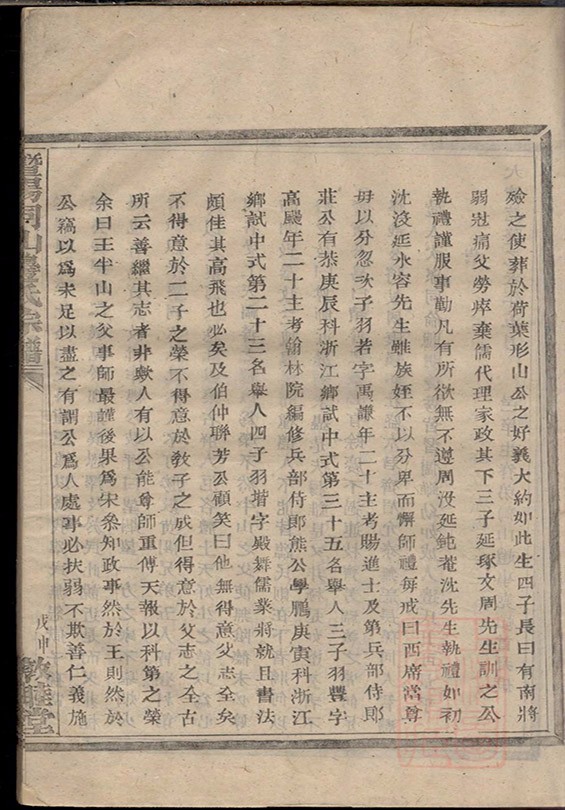 殮之使葬於荷葉形山公之好義大約如此生四子長曰有南將
弱冠痛父勞瘁棄儒代理家政其下三子延琢文周先生訓之公
執禮謹服事勤凡有所欲無不遵周没延鈍菴沈先生執禮如初
沈没延水容先生雖族姪不以分卑而懈師禮每戒曰西席當尊
毋以分忽次子羽若字禹謙年二十主考賜進士及第兵部侍郎
莊公有恭庚辰科浙江鄉試中式第三十五名舉人三子羽豐字
高颺年二十主考翰林院編修兵部侍郎熊公學鵬庚寅科浙江
鄉試中式第二十三名舉人四子羽揩字殿舞儒業將就且書法
頗佳其高飛也必矣及伯仲聯芳公顧笑曰他無得意父志全矣
不得意於二子之榮不得意於教子之成但得意於父志之全古
所云善繼其志者非歟人有以公能尊師重傅天報以科第之榮
余曰王半山之父事師最謹後果爲宋叅知政事然於王則然於
公竊以爲未足以盡之有謂公爲人處事必扶弱不欺善仁義施
暨陽同山壽氏宗譜
戊申
敦睦堂